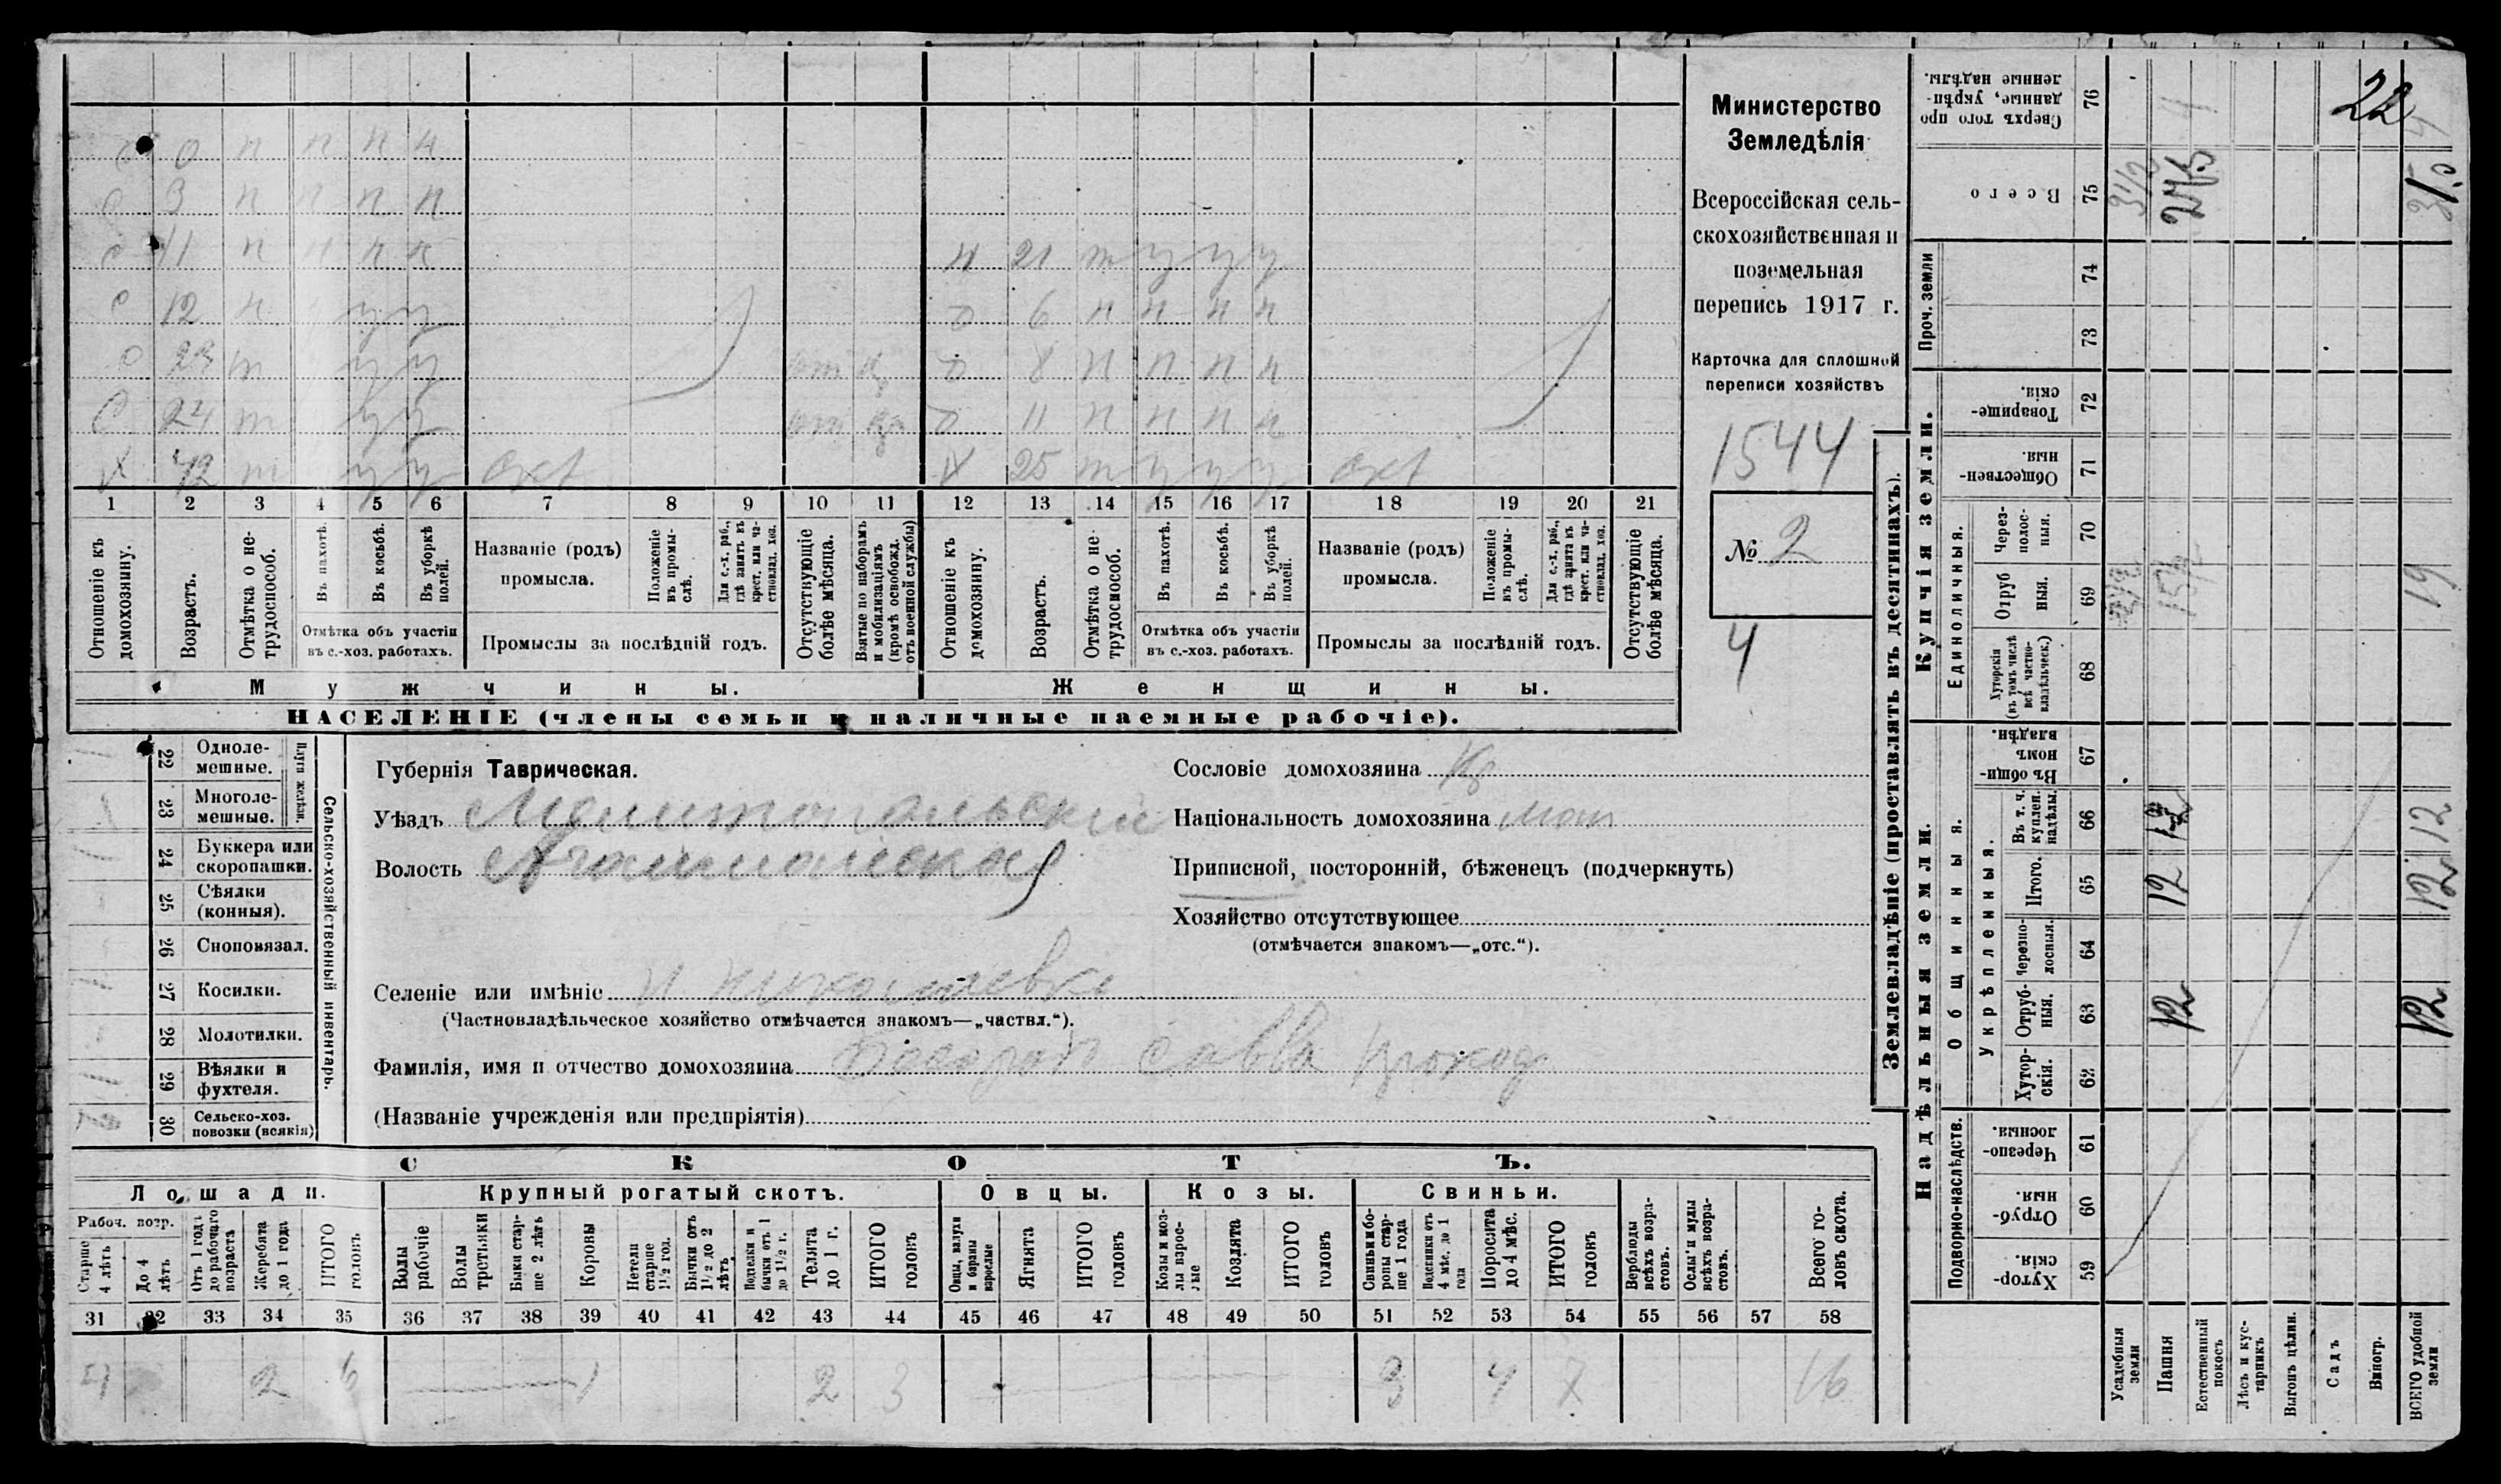 Министерство
Земледѣлія
Всероссійская сель-
скохозяйственная и
поземельная
перепись 1917 г.
Карточка для сплошной
переписи хозяйствъ
1544
№ 2
4
0 п п п п
3 п п п п
11 п п п п
21 т у у у
12 п у у
6 п п п п
23 т у у
8 п п п п
24 т у у
11 п п п п
X 42 т у у
X 25 т у у у
1 2 3 4 5 6 7 8 9 10 11 12 13 14 15 16 17 18 19 20 21
Отношеніе къ домохозяину.
Возрастъ.
Отмѣтка о не-трудоспособ.
Въ пахотѣ.
Въ косьбѣ.
Въ уборкѣ полей.
Отмѣтка объ участіи
въ с.-хоз. работахъ.
Названіе (родъ)
промысла.
Положеніе въ промы-слѣ.
Для с.-х. раб., гдѣ занятъ въ крест. или ча-стновлад. хоз.
Промыслы за послѣдній годъ.
Отсутствующіе болѣе мѣсяца.
Взятые по наборамъ и мобилизаціямъ (кромѣ освобожд. отъ военной службы)
Отношеніе къ домохозяину.
Возрастъ.
Отмѣтка о не-трудоспособ.
Въ пахотѣ.
Въ косьбѣ.
Въ уборкѣ полей.
Отмѣтка объ участіи
въ с.-хоз. работахъ.
Названіе (родъ)
промысла.
Положеніе въ промы-слѣ.
Для с.-х. раб., гдѣ занята въ крест. или ча-стновлад. хоз.
Промыслы за послѣдній годъ.
Отсутствующіе болѣе мѣсяца.
Мужчины.
Женщины.
НАСЕЛЕНІЕ (члены семьи и наличные наемные рабочіе).
Сельско-хозяйственный инвентарь.
Плуги желѣзн.
22 Одноле-мешные.
23 Многоле-мешные.
24 Буккера или скоропашки.
25 Сѣялки (конныя).
26 Сноповязал.
27 Косилки.
28 Молотилки.
29 Вѣялки и фухтеля.
30 Сельско-хоз. повозки (всякія)
Губернія Таврическая.
Уѣздъ Мелитопольскій
Волость
Сословіе домохозяина Кр
Національность домохозяина
Приписной, посторонній, бѣженецъ (подчеркнуть)
Хозяйство отсутствующее
(отмѣчается знакомъ—„отс.“).
Селеніе или имѣніе Н Николаевка
(Частновладѣльческое хозяйство отмѣчается знакомъ—„частвл.“).
Фамилія, имя и отчество домохозяина Савва Прокоф
(Названіе учрежденія или предпріятія)
СКОТЪ.
Лошади.
Крупный рогатый скотъ.
Овцы.
Козы.
Свиньи.
Рабоч. возр.
Старше 4 лѣтъ
До 4 лѣтъ
Отъ 1 года до рабочаго возраста
Жеребята до 1 года
ИТОГО головъ
Волы рабочіе
Волы третьяки
Быки стар-ше 2 лѣтъ
Коровы
Нетели старше 1½ год.
Бычки отъ 1½ до 2 лѣтъ
Подтелки и бычки отъ 1 до 1½ г.
Телята до 1 г.
ИТОГО головъ
Овцы, валухи и бараны взрослые
Ягнята
ИТОГО головъ
Козы и коз-лы взрос-лые
Козлята
ИТОГО головъ
Свиньи и бо-ровы стар-ше 1 года
Подсвинки отъ 4 мѣс. до 1 года
Поросята до 4 мѣс.
ИТОГО головъ
Верблюды всѣхъ возра-стовъ.
Ослы и мулы всѣхъ возра-стовъ.
Всего го-ловъ скота.
31 32 33 34 35 36 37 38 39 40 41 42 43 44 45 46 47 48 49 50 51 52 53 54 55 56 57 58
4 2 6 1 2 3 3 4 7 16
Землевладѣніе (проставлять въ десятинахъ).
Надѣльныя земли.
Купчія земли.
Проч. земли
Подворно-наслѣдств.
Общинныя.
Укрѣпленныя.
Единоличныя.
Сверхъ того про-данные, укрѣп-ленные надѣлы.
76
Всего
75
74
73
Товарище-скія.
72
Обществен-ныя.
71
Через-полос-ныя.
70
Отруб-ныя.
69
Хуторскія (въ томъ числѣ всѣ частно-владѣльческ.)
68
Въ общин-номъ владѣн.
67
Въ т. ч. куплен. надѣлы.
66
Итого.
65
Черезпо-лосныя.
64
Отруб-ныя.
63
Хутор-скія.
62
Черезпо-лосныя.
61
Отруб-ныя.
60
Хутор-скія.
59
Усадебныя земли
Пашня
Естественный покосъ
Лѣсъ и кус-тарникъ
Выгонъ цѣлин.
Садъ
Виногр.
ВСЕГО удобной земли
22
3½
15½
19
12 12
12 12
12 12